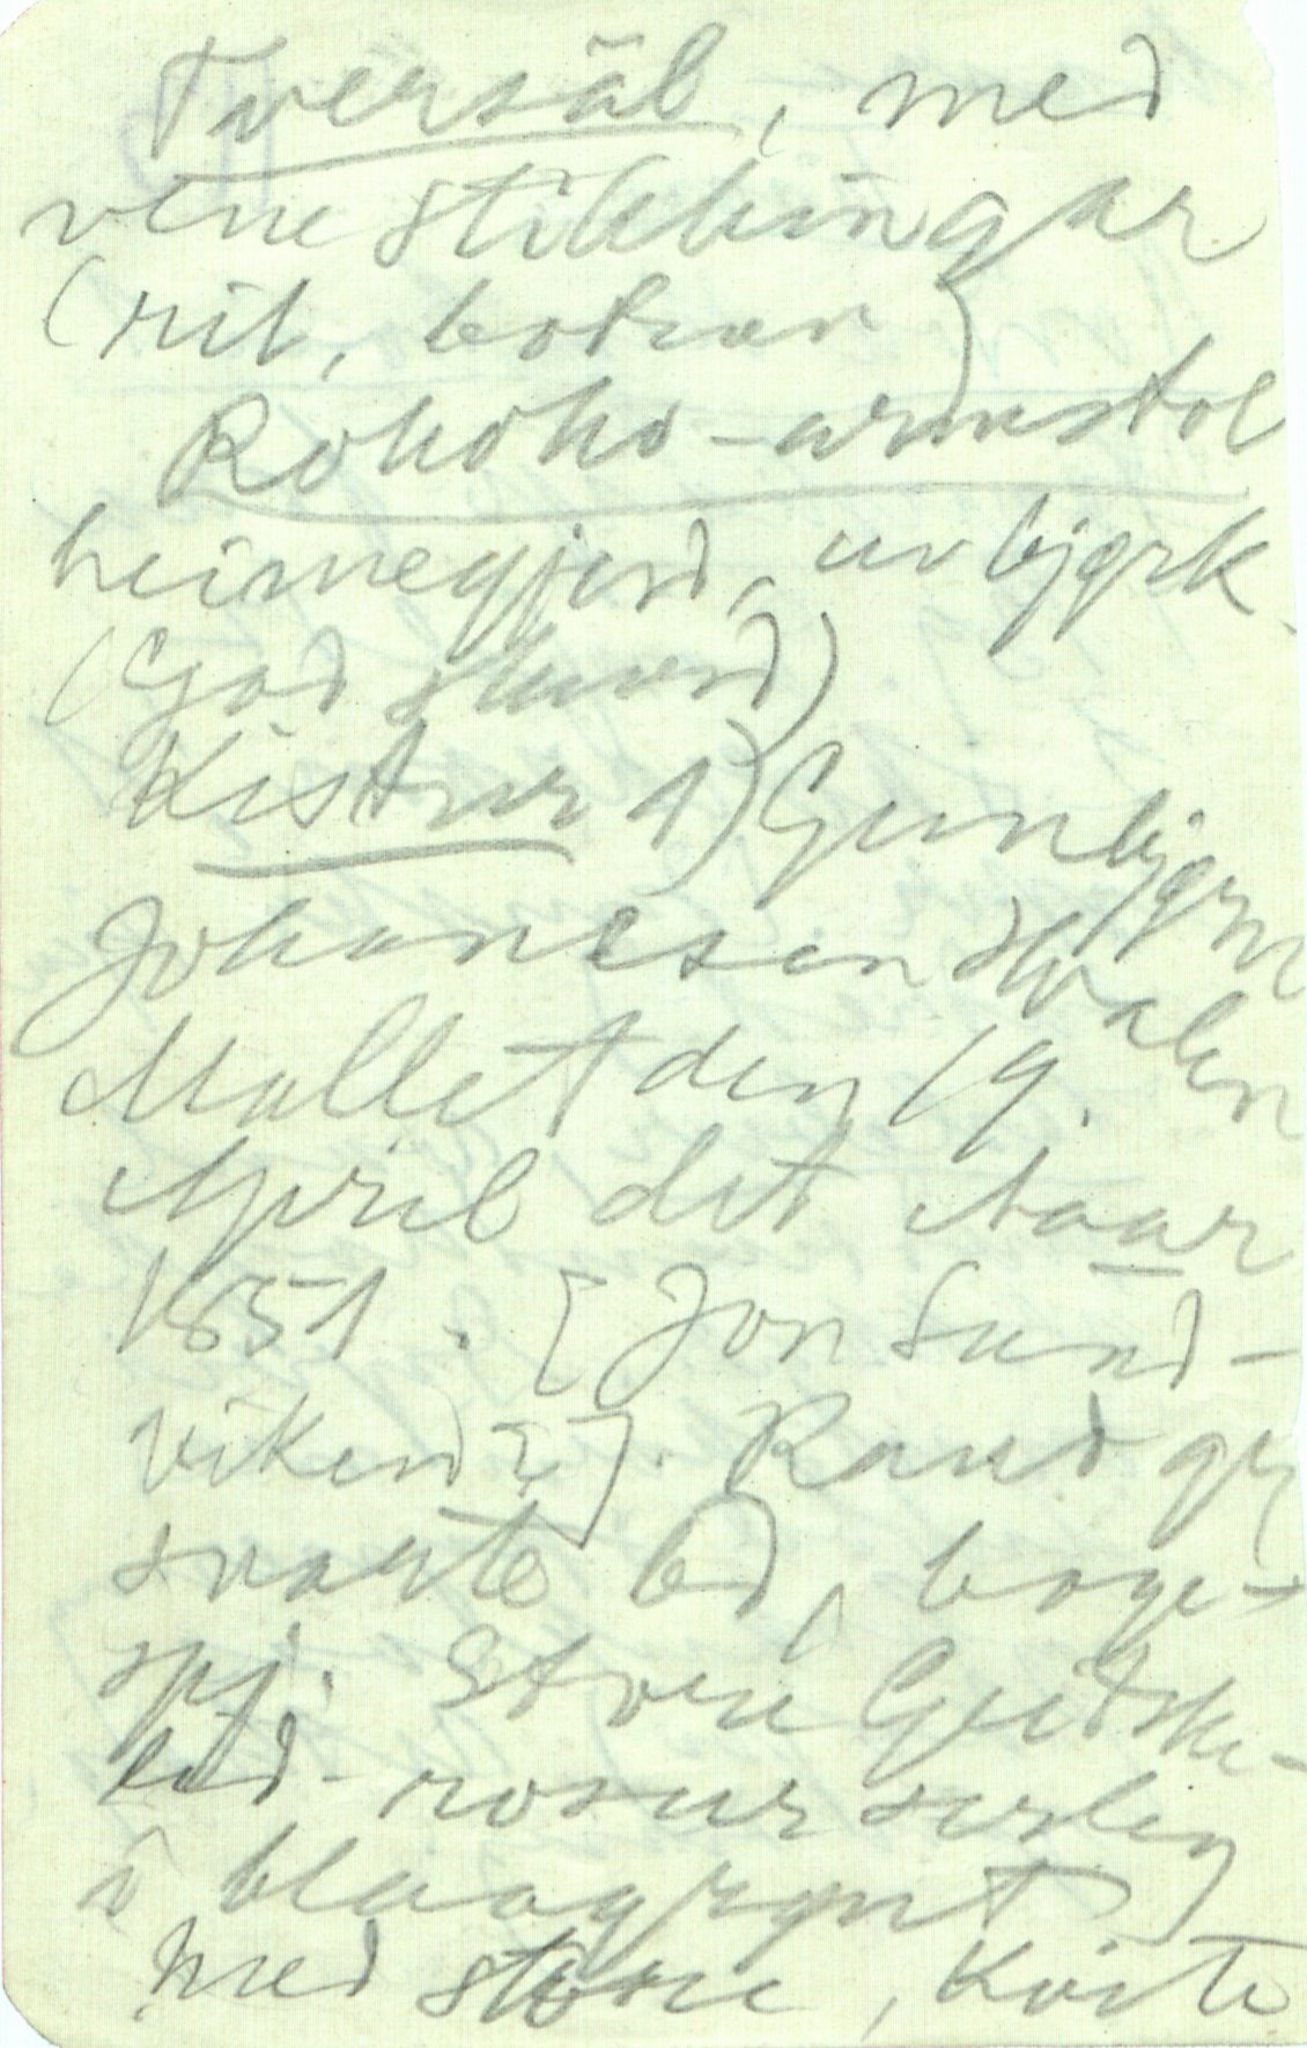 Tversäl, med
vene stikkingar
(rib, botnar)
Rokoko-armstol
heimegjord, uv bjørk.
(God skurd)
Kistur 1) Gunbjørn
Johannesen Hvalen
Mallet den 19.
April det Aaar
1851. [Jon Sund-
viken?]. Raud og
svarte bd, boge-
spj. Store Gudske-
lød-rosur serleg
i blaagrønt
med store, kvite